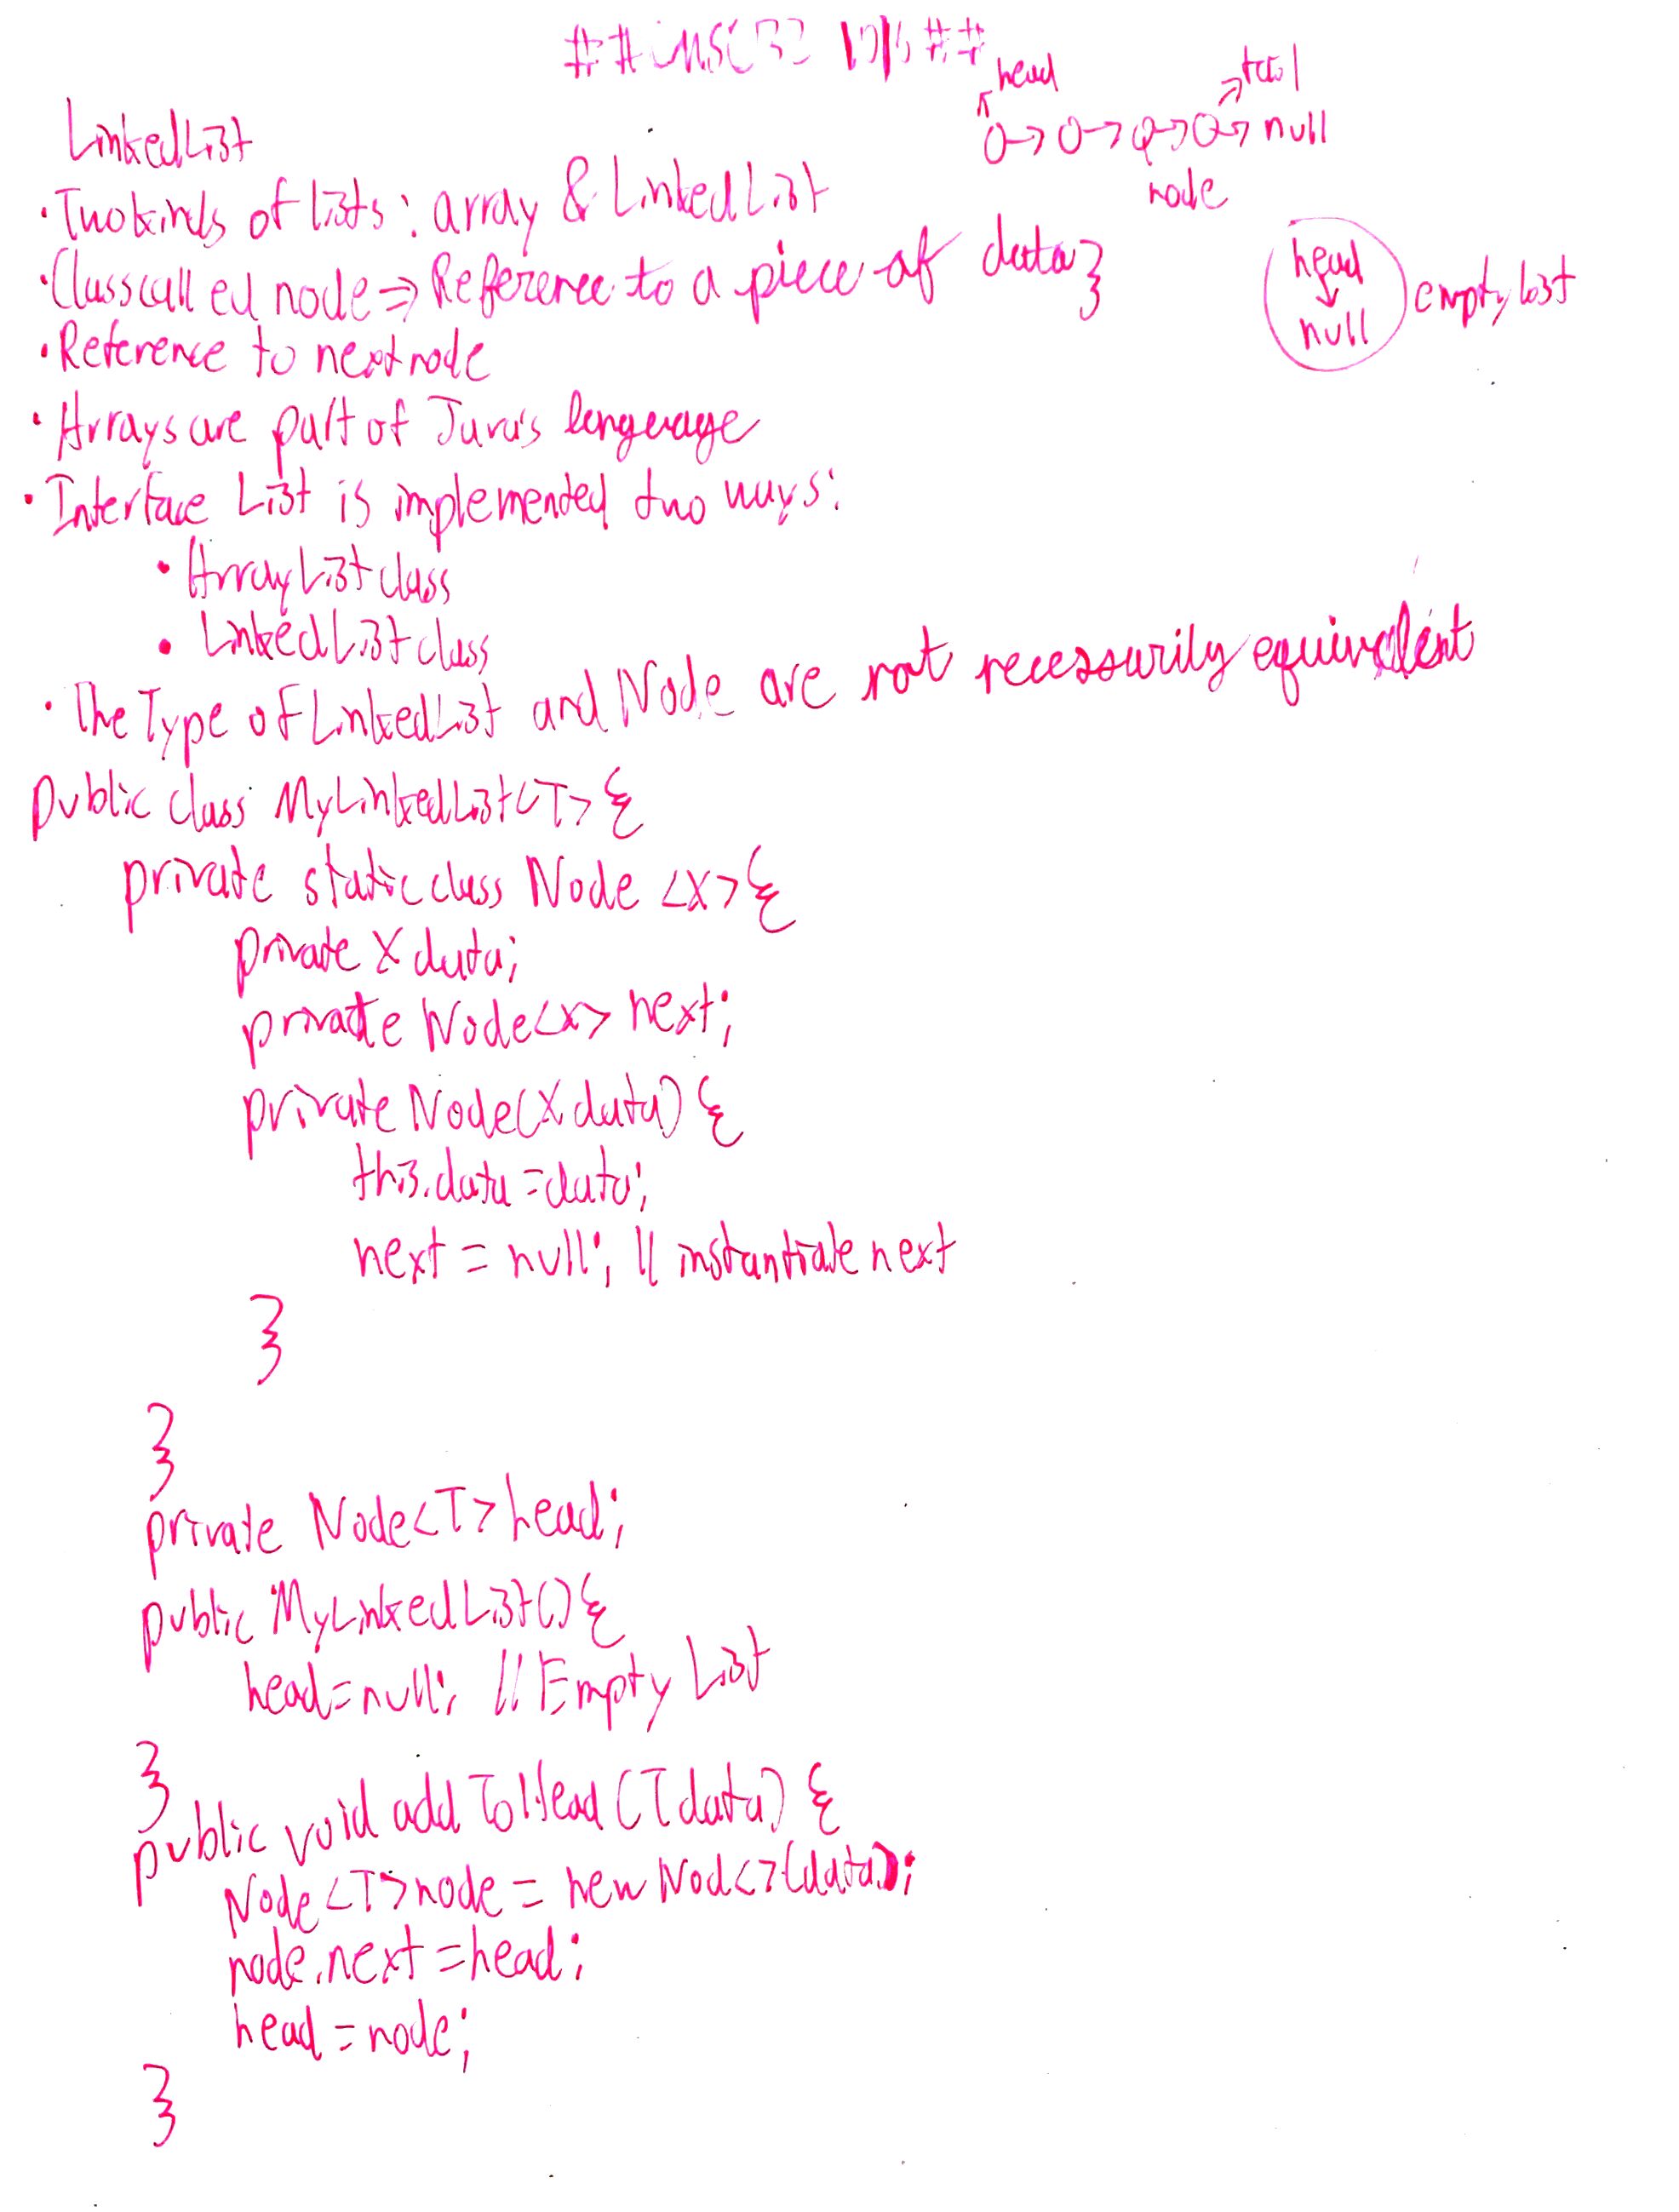 ## CMSC132 ##
head
tail
O→ O→ O→ O→ null
node
LinkedList
• Two kinds of lists: array & Linked List
• Class called node ⇒ Reference to a piece of data}
head
↓
null
empty list
• Reference to next node
• Arrays are part of Java's language
• Interface List is implemented two ways:
• ArrayList class
• LinkedList class
• The Type of LinkedList and Node are not necessarily equivalent
public class MyLinkedList<T> {
private static class Node <X> {
private X data;
private Node<X> next;
private Node(X data) {
this.data = data;
next = null; // instantiate next
}
}
private Node<T> head;
public MyLinkedList() {
head = null; // Empty List
}
public void addToHead (T data) {
Node <T> node = new Nod<>(data);
node.next = head;
head = node;
}